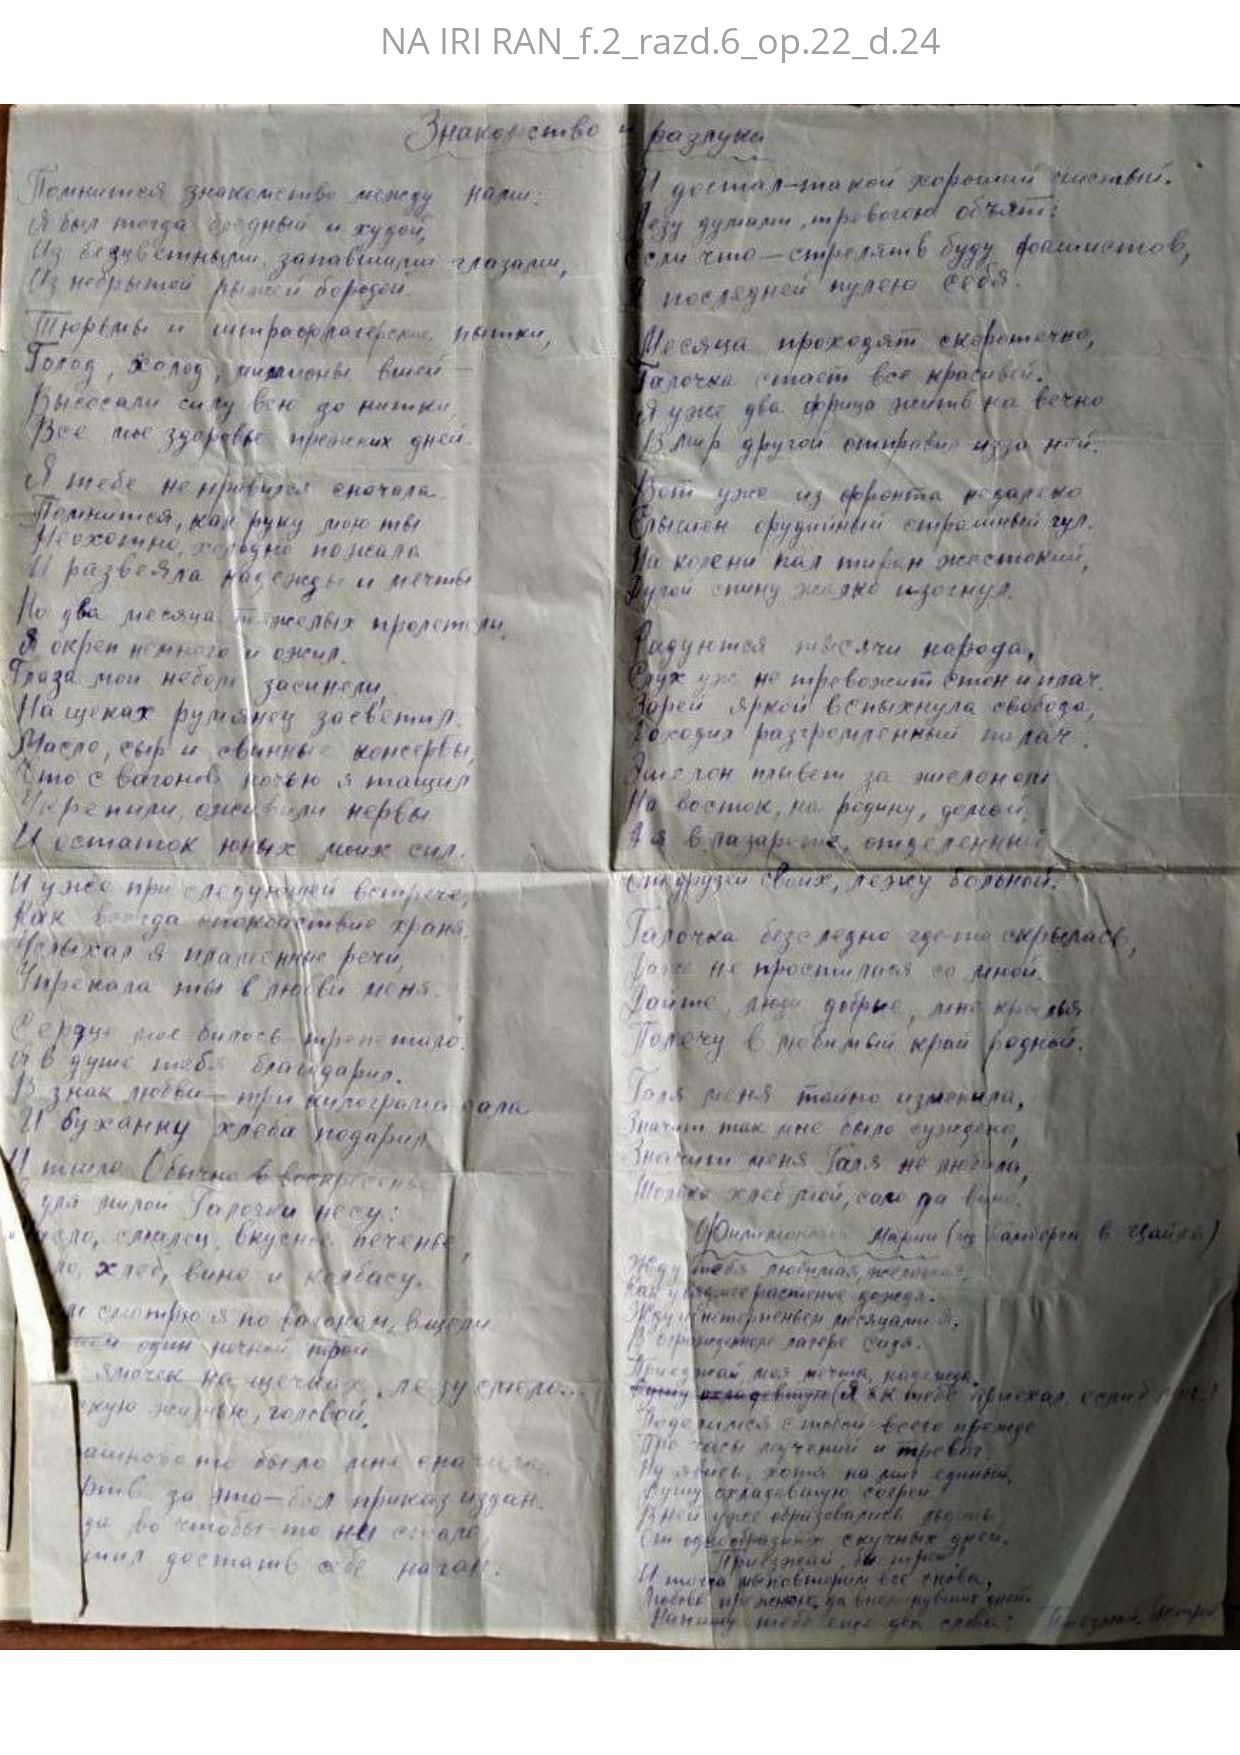 NA IRI RAN_f.2_razd.6_op.22_d.24
Знакомство и разлука
Помнится знакомство между нами:
Я был тогда бледный и худой,
Из безцветными запавшими глазами,
Из небрытой рыжей бородой.
Тюрьмы и штрафлагерские пытки,
Голод, холод, миллионы вшей —
Высосали силу всю до нитки,
Все мое здоровье прежних дней.
Я тебе не нравился сначала
Помнится, как руку мою ты
Неохотно, холодно пожала
И развеяла надежды и мечты
Но два месяца тяжелых пролетели,
Я окреп немного и ожил.
Глаза мои небом засинели,
На щеках румянец засветил.
Масло, сыр и свинные консервы,
Что с вагонов ночью я тащил
Укрепили, оживили нервы
И остаток юных моих сил.
И уже при следующей встрече,
Как всегда спокойствие храня,
Услыхал я пламенные речи,
Упрекала ты в любви меня.
Сердце мое билось трепетало.
Я в душе тебя благодарил.
В знак любви — три килограма сала
И буханку хлеба подарил
И пошло. Обычно в воскресенье
милой Галочки несу:
Масло, смалец, вкусное печенье,
хлеб, вино и колбасу.
смотрю я по вагонам, в щели
один ночной порой
ямочек на щечках, лезу смело...
жизнью, головой.
было мне сначала
за это — был приказ издан.
во чтобы-то ни стало
достать себе наган.
И достал — такой хороший чистый.
Лезу думами, тревогою объят:
Если что — стрелять буду фашистов,
А последней пулею себя.
Месяца проходят скоротечно,
Галочка стает все красивей.
Я уже два фрица жить на вечно
В мир другой отправил изза ней.
Вот уже из фронта недалеко
Слышен орудийный страшный гул.
На колени пал тиран жестокий,
Другой спину жалко изогнул.
Радуются тысячи народа,
Слух уж не тревожит стон и плач.
Зарей яркой вспыхнула свобода,
разгромленный палач.
Эшелон плывет за эшелоном
На восток, на родину, домой,
А я в лазарете, отделенный
От друзей своих, лежу больной.
Галочка безследно где-то скрылась,
Даже не простилася со мной.
Дайте, люди добрые, мне крылья
Полечу в любимый край родный.
Галя меня тайно изменила,
Значит так мне было суждено,
Значит меня Галя не любила,
Только хлеб мой, сало да вино.
Марии (из Бамберга в Цайлс)
Жду тебя любимая, желанная,
Как увядшее растение дождя.
Жду с нетерпеньем месяцами я,
В огражденном лагере сидя.
Приезжай моя мечта, надежда.
(Я б к тебе приехал, если б мог)
Поделимся с тобой всего прежде
Про часы мучений и тревог
Ну явись, хотя на миг единый,
Душу охладевшую согрей
В ней уже образовались льдины
От однообразных скучных дней.
Приезжай, быстрей
И тогда мы повторим все снова,
Любовь прежнюю, да в минувших дней.
Напишу тебе еще два слова: Приезжай, быстрей